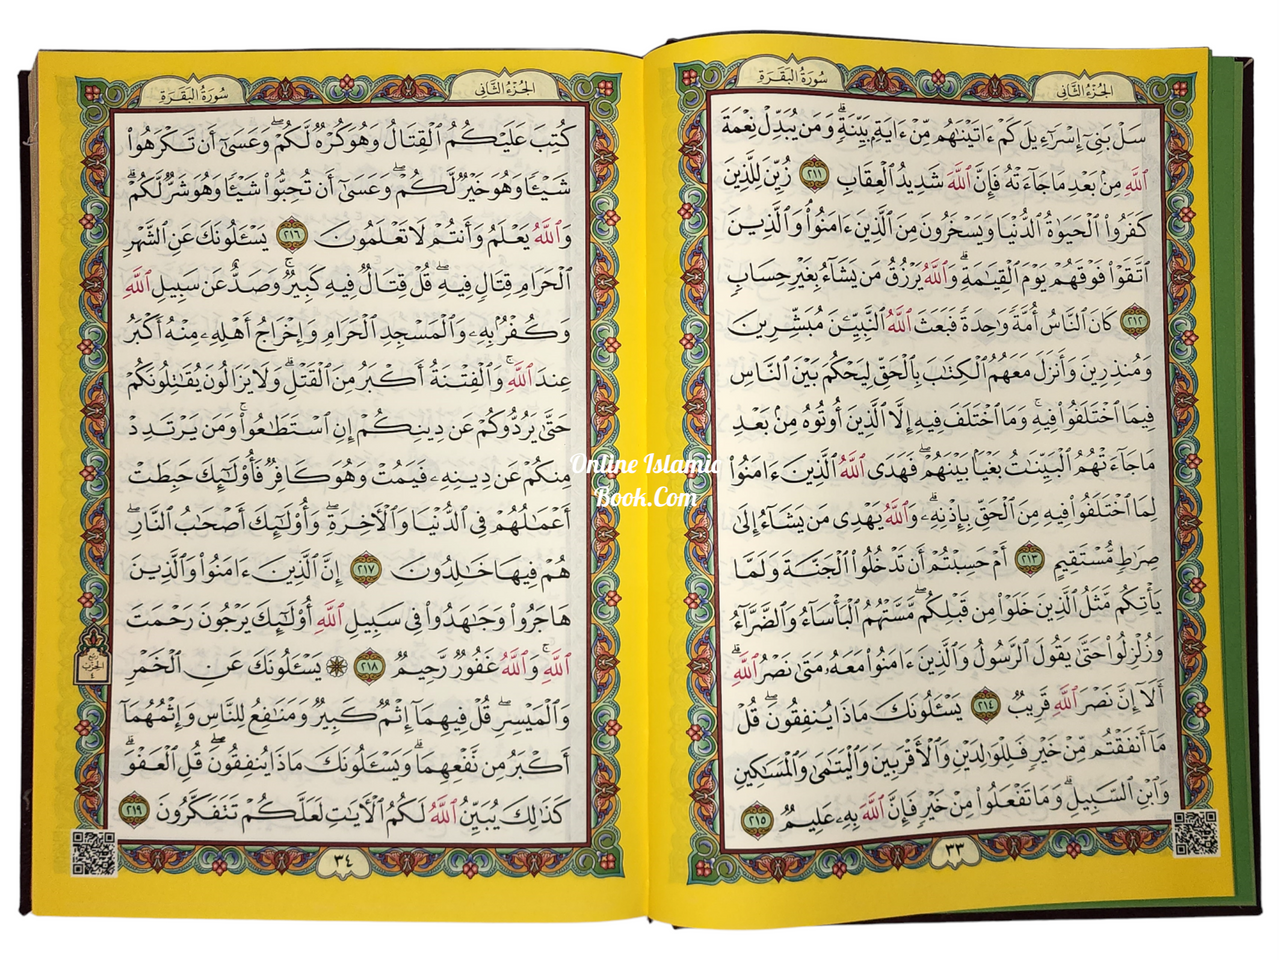 سُورَةُ البَقَرَةِ
الجُزْءُ الثَّانِى
سَلْ بَنِىٓ إِسْرَٰٓءِيلَ كَمْ ءَاتَيْنَٰهُم مِّنْ ءَايَةٍۭ بَيِّنَةٍۗ وَمَن يُبَدِّلْ نِعْمَةَ
ٱللَّهِ مِنۢ بَعْدِ مَا جَآءَتْهُ فَإِنَّ ٱللَّهَ شَدِيدُ ٱلْعِقَابِ ٢١١ زُيِّنَ لِلَّذِينَ
كَفَرُوا۟ ٱلْحَيَوٰةُ ٱلدُّنْيَا وَيَسْخَرُونَ مِنَ ٱلَّذِينَ ءَامَنُوا۟ۘ وَٱلَّذِينَ
ٱتَّقَوْا۟ فَوْقَهُمْ يَوْمَ ٱلْقِيَٰمَةِۗ وَٱللَّهُ يَرْزُقُ مَن يَشَآءُ بِغَيْرِ حِسَابٍ
٢١٢ كَانَ ٱلنَّاسُ أُمَّةً وَٰحِدَةً فَبَعَثَ ٱللَّهُ ٱلنَّبِيِّۦنَ مُبَشِّرِينَ
وَمُنذِرِينَ وَأَنزَلَ مَعَهُمُ ٱلْكِتَٰبَ بِٱلْحَقِّ لِيَحْكُمَ بَيْنَ ٱلنَّاسِ
فِيمَا ٱخْتَلَفُوا۟ فِيهِۚ وَمَا ٱخْتَلَفَ فِيهِ إِلَّا ٱلَّذِينَ أُوتُوهُ مِنۢ بَعْدِ
مَا جَآءَتْهُمُ ٱلْبَيِّنَٰتُ بَغْيًۢا بَيْنَهُمْۖ فَهَدَى ٱللَّهُ ٱلَّذِينَ ءَامَنُوا۟
لِمَا ٱخْتَلَفُوا۟ فِيهِ مِنَ ٱلْحَقِّ بِإِذْنِهِۦۗ وَٱللَّهُ يَهْدِى مَن يَشَآءُ إِلَىٰ
صِرَٰطٍ مُّسْتَقِيمٍ ٢١٣ أَمْ حَسِبْتُمْ أَن تَدْخُلُوا۟ ٱلْجَنَّةَ وَلَمَّا
يَأْتِكُم مَّثَلُ ٱلَّذِينَ خَلَوْا۟ مِن قَبْلِكُمۖ مَّسَّتْهُمُ ٱلْبَأْسَآءُ وَٱلضَّرَّآءُ
وَزُلْزِلُوا۟ حَتَّىٰ يَقُولَ ٱلرَّسُولُ وَٱلَّذِينَ ءَامَنُوا۟ مَعَهُۥ مَتَىٰ نَصْرُ ٱللَّهِۗ
أَلَآ إِنَّ نَصْرَ ٱللَّهِ قَرِيبٌ ٢١٤ يَسْـَٔلُونَكَ مَاذَا يُنفِقُونَۖ قُلْ
مَآ أَنفَقْتُم مِّنْ خَيْرٍ فَلِلْوَٰلِدَيْنِ وَٱلْأَقْرَبِينَ وَٱلْيَتَٰمَىٰ وَٱلْمَسَٰكِينِ
وَٱبْنِ ٱلسَّبِيلِۗ وَمَا تَفْعَلُوا۟ مِنْ خَيْرٍ فَإِنَّ ٱللَّهَ بِهِۦ عَلِيمٌ ٢١٥
٣٣
الجُزْءُ الثَّانِى
سُورَةُ البَقَرَةِ
كُتِبَ عَلَيْكُمُ ٱلْقِتَالُ وَهُوَ كُرْهٌ لَّكُمْۖ وَعَسَىٰٓ أَن تَكْرَهُوا۟
شَيْـًٔا وَهُوَ خَيْرٌ لَّكُمْۖ وَعَسَىٰٓ أَن تُحِبُّوا۟ شَيْـًٔا وَهُوَ شَرٌّ لَّكُمْۗ
وَٱللَّهُ يَعْلَمُ وَأَنتُمْ لَا تَعْلَمُونَ ٢١٦ يَسْـَٔلُونَكَ عَنِ ٱلشَّهْرِ
ٱلْحَرَامِ قِتَالٍ فِيهِۖ قُلْ قِتَالٌ فِيهِ كَبِيرٌۖ وَصَدٌّ عَن سَبِيلِ ٱللَّهِ
وَكُفْرٌۢ بِهِۦ وَٱلْمَسْجِدِ ٱلْحَرَامِ وَإِخْرَاجُ أَهْلِهِۦ مِنْهُ أَكْبَرُ
عِندَ ٱللَّهِۚ وَٱلْفِتْنَةُ أَكْبَرُ مِنَ ٱلْقَتْلِۗ وَلَا يَزَالُونَ يُقَٰتِلُونَكُمْ
حَتَّىٰ يَرُدُّوكُمْ عَن دِينِكُمْ إِنِ ٱسْتَطَٰعُوا۟ۚ وَمَن يَرْتَدِدْ
مِنكُمْ عَن دِينِهِۦ فَيَمُتْ وَهُوَ كَافِرٌ فَأُو۟لَٰٓئِكَ حَبِطَتْ
أَعْمَٰلُهُمْ فِى ٱلدُّنْيَا وَٱلْءَاخِرَةِۖ وَأُو۟لَٰٓئِكَ أَصْحَٰبُ ٱلنَّارِۖ
هُمْ فِيهَا خَٰلِدُونَ ٢١٧ إِنَّ ٱلَّذِينَ ءَامَنُوا۟ وَٱلَّذِينَ
هَاجَرُوا۟ وَجَٰهَدُوا۟ فِى سَبِيلِ ٱللَّهِ أُو۟لَٰٓئِكَ يَرْجُونَ رَحْمَتَ
ٱللَّهِۚ وَٱللَّهُ غَفُورٌ رَّحِيمٌ ٢١٨ ۞ يَسْـَٔلُونَكَ عَنِ ٱلْخَمْرِ
وَٱلْمَيْسِرِۖ قُلْ فِيهِمَآ إِثْمٌ كَبِيرٌ وَمَنَٰفِعُ لِلنَّاسِ وَإِثْمُهُمَآ
أَكْبَرُ مِن نَّفْعِهِمَاۗ وَيَسْـَٔلُونَكَ مَاذَا يُنفِقُونَۖ قُلِ ٱلْعَفْوَۗ
كَذَٰلِكَ يُبَيِّنُ ٱللَّهُ لَكُمُ ٱلْءَايَٰتِ لَعَلَّكُمْ تَتَفَكَّرُونَ ٢١٩
الحزب
٤
٣٤
Online Islamic
Book.Com